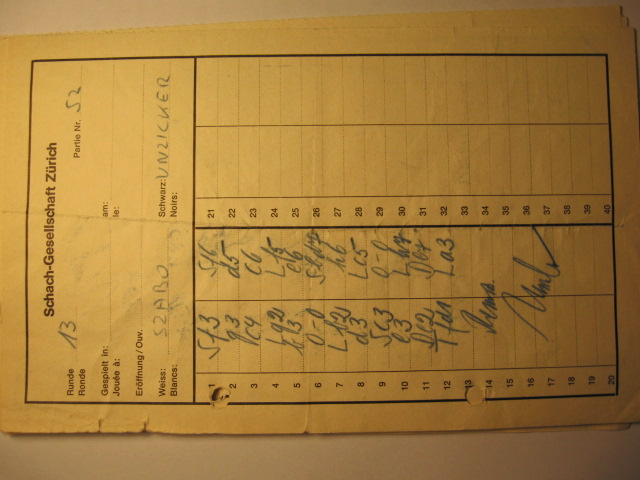 Schach-Gesellschaft Zürich
Runde 13 Partie Nr. 52
Ronde
Gespielt in: am:
Jouée à: le:
Eröffnung/Ouv.
Weiss: SZABO Schwarz: UNZICKER
Blancs: Noirs:
1 Sf3 Sf6 21
2 g3 d5 22
3 c4 c6 23
4 Lg2 Lf5 24
5 b3 e6 25
6 0-0 Sbd7 26
7 Lb2 h6 27
8 d3 Lc5 28
9 Sc3 0-0 29
10 e3 Lh7 30
11 De2 De7 31
12 Tfd1 La3 32
13 33
14 Remis 34
15 35
16 36
17 37
18 38
19 39
20 40